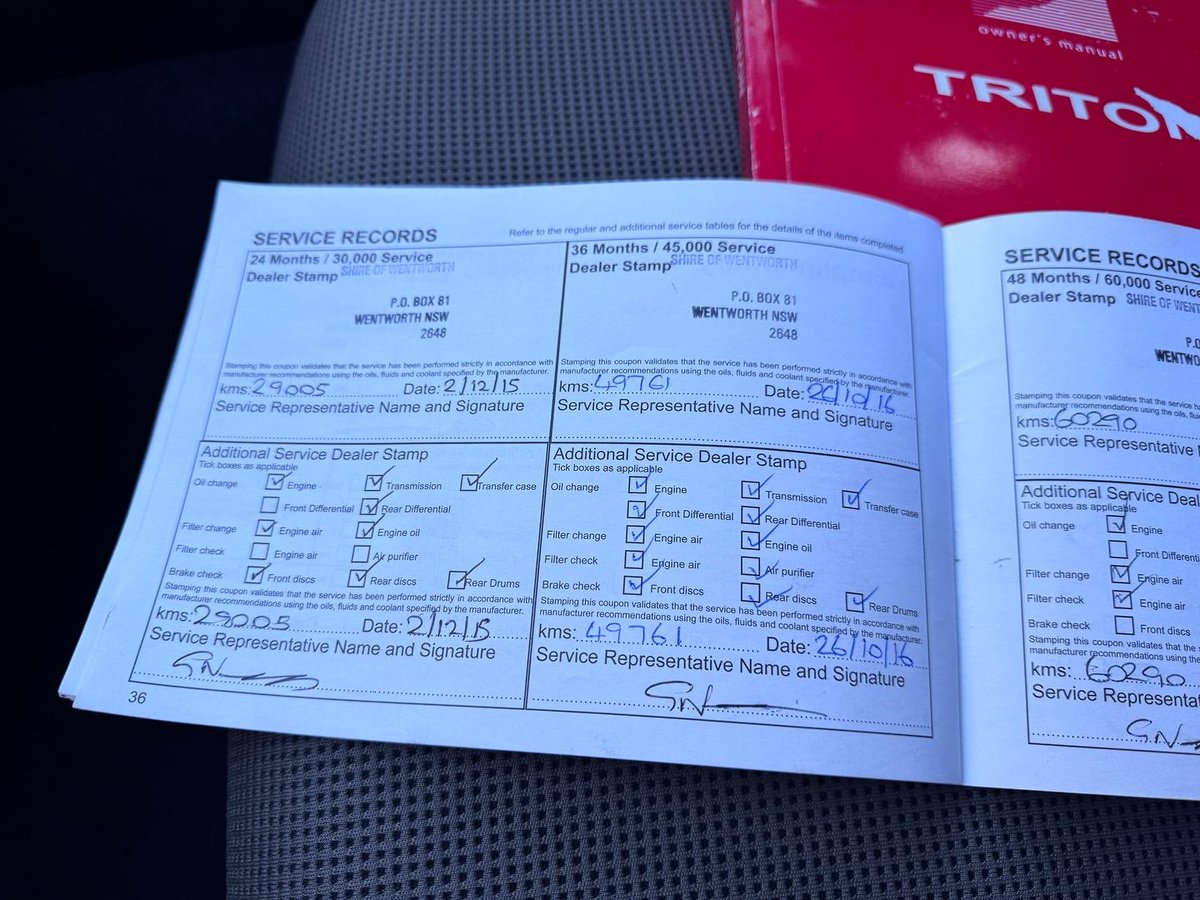 owner's manual
TRITON
SERVICE RECORDS
Refer to the regular and additional service tables for the details of the items completed
24 Months / 30,000 Service
Dealer Stamp SHIRE OF WENTWORTH
P.O. BOX 81
WENTWORTH NSW
2648
Stamping this coupon validates that the service has been performed strictly in accordance with
manufacturer recommendations using the oils, fluids and coolant specified by the manufacturer.
kms: 29005 Date: 2/12/15
Service Representative Name and Signature
Additional Service Dealer Stamp
Tick boxes as applicable
Oil change Engine Transmission Transfer case
Front Differential Rear Differential
Filter change Engine air Engine oil
Filter check Engine air Air purifier
Brake check Front discs Rear discs Rear Drums
Stamping this coupon validates that the service has been performed strictly in accordance with
manufacturer recommendations using the oils, fluids and coolant specified by the manufacturer.
kms: 29005 Date: 2/12/15
Service Representative Name and Signature
36
36 Months / 45,000 Service
Dealer Stamp SHIRE OF WENTWORTH
P.O. BOX 81
WENTWORTH NSW
2648
Stamping this coupon validates that the service has been performed strictly in accordance with
manufacturer recommendations using the oils, fluids and coolant specified by the manufacturer.
kms: 49761 Date: 26/10/16
Service Representative Name and Signature
Additional Service Dealer Stamp
Tick boxes as applicable
Oil change Engine Transmission Transfer case
Front Differential Rear Differential
Filter change Engine air Engine oil
Filter check Engine air Air purifier
Brake check Front discs Rear discs Rear Drums
Stamping this coupon validates that the service has been performed strictly in accordance with
manufacturer recommendations using the oils, fluids and coolant specified by the manufacturer.
kms: 49761 Date: 26/10/16
Service Representative Name and Signature
SERVICE RECORDS
48 Months / 60,000 Service
Dealer Stamp SHIRE OF WENT
P.O
WENTW
Stamping this coupon validates that the service h
manufacturer recommendations using the oils, flui
kms: 60290
Service Representative N
Additional Service Deal
Tick boxes as applicable
Oil change Engine
Front Differenti
Filter change Engine air
Filter check Engine air
Brake check Front discs
Stamping this coupon validates that the se
manufacturer recommendations using the
kms: 60290
Service Representat